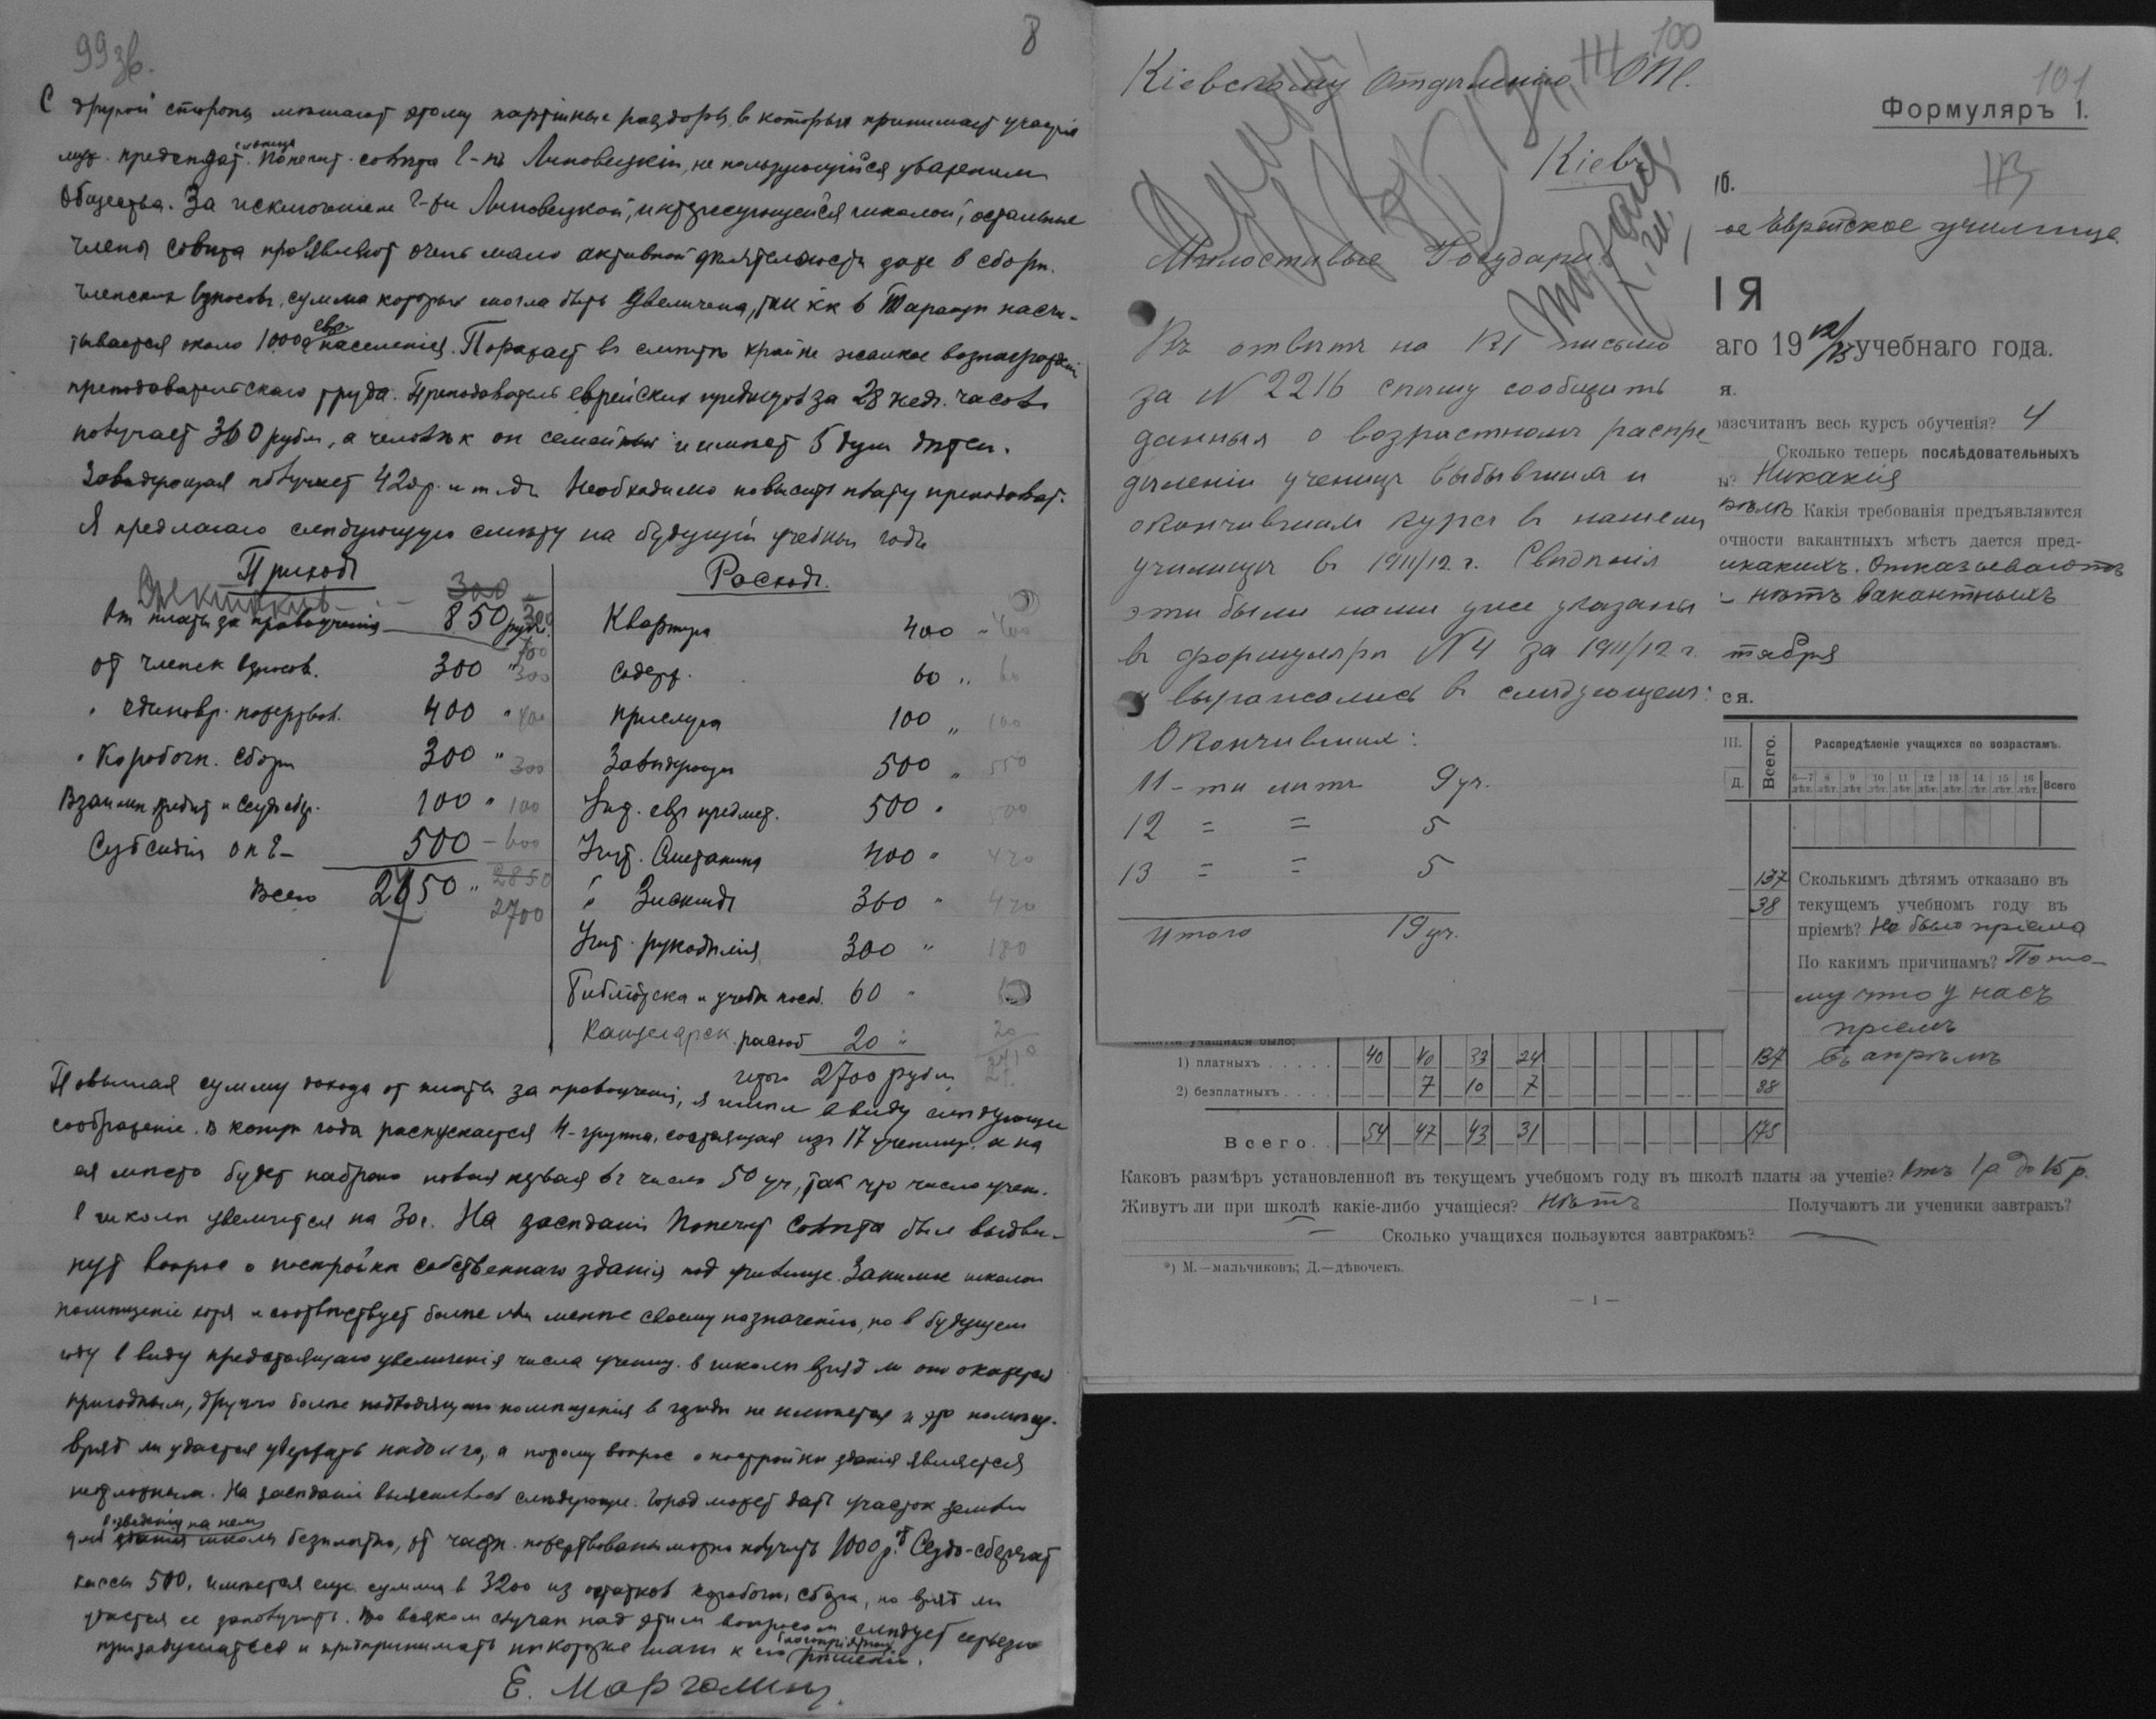 99 зв.
8
С другой стороны мѣшают этому партійные раздоры, в которых принимает участіе
предсѣдат. Попечит. совѣта г-нъ Липовецкій, не пользующійся уваженіем
Общества. За исключеніем г-жи Липовецкой, интересующейся школой, остальные
члены совѣта проявляют очень мало активной дѣятельности даже в сборѣ
членских взносовъ, сумма которых могла быть увеличена, так кк в Таращѣ насчи-
тывается около 10000 евр. населенія. Поражает в смѣтѣ крайне жалкое вознагражденіе
преподавательскаго труда. Преподаватель еврейских предметов за 28 нед. часовъ
получает 360 рубл., а человѣк он семейный и имѣет 5 душ дѣтей.
Завѣдующая получает 420 р. и т. д. Необходимо повысить плату преподават.
Я предлагаю слѣдующую смѣту на будущій учебный годъ
Приходъ
300
От платы за правоученія 850 рубл. 300
от членск. взносов. 300 " 300
" единовр. пожертвов. 400 " 400
" Коробочн. сбора 300 " 300
Взаимн. кредит. и ссудо сбер. 100 " 100
Субсидія ОПЕ 500 - 600
Всего 2450 " 2850
2700
Расходъ.
Квартира 400 " 400
Содерж. 60 " 60
прислуга 100 " 100
Завѣдующая 500 " 550
Учит. евр. предмет. 500 " 500
Учит. Сметанина 400 " 420
" Зискиндъ 360 " 420
Учит. рукодѣлія 300 " 180
Библіотека и учебн. пособ. 60 "
Канцелярск. расход 20 " 20
Итого 2700 рубл.
Повышая сумму дохода от платы за правоученіе, я имѣл в виду слѣдующее
соображеніе. В концѣ года распускается 4-группа, состоящая из 17 учениц, а на
ея мѣсто будет набрана новая первая въ число 50 уч., так что число учен.
в школѣ увеличится на 30. На засѣданіи Попечит. Совѣта был выдви-
нут вопрос о постройкѣ собственнаго зданія под училище. Занимаемое школой
помѣщеніе хотя и соотвѣтствует болѣе или менѣе своему назначенію, но в будущем
году в виду предстоящаго увеличенія числа учениц в школѣ вряд ли оно окажется
пригодным, другого болѣе подходящаго помѣщенія в городѣ не имѣется и это помѣщ.
вряд ли удастся удержать надолго, а потому вопрос о постройкѣ зданія является
неотложным. На засѣданіи выяснилось слѣдующее. Город может дать участок земли
для возведенія на нем школы безплатно, от частн. пожертвованій можно получить 1000 р., от Ссудо-сберегат.
кассы 500, имѣется еще сумма в 3200 из остатков коробочн. сбора, но вряд ли
удастся ее заполучить. Во всяком случаѣ над этим вопросом слѣдует серьезно
призадуматься и предпринимать нѣкоторые шаги к его благопріятному рѣшенію.
Е. Марголинъ.
100
Кіевскому Отдѣленію ОПЕ.
Кіевъ
Милостивые Государи
Въ отвѣтъ на письмо
за N 2216 спѣшу сообщить
данныя о возрастномъ распре-
дѣленіи ученицъ выбывшихъ и
окончившихъ курсъ въ нашемъ
училищѣ въ 1911/12 г. Свѣдѣнія
эти были нами уже указаны
въ формулярѣ N 4 за 1911/12 г.
и выражались въ слѣдующемъ:
Окончившихъ:
11-ти лѣтъ 9 уч.
12 = = 5
13 = = 5
Итого 19 уч.
101
Формуляръ 1.
113
ое Еврейское училище
ІЯ
аго 1912/13 учебнаго года.
я.
разсчитанъ весь курсъ обученія? 4
Сколько теперь послѣдовательныхъ
ы? Никакія
Какія требованія предъявляются
очности вакантныхъ мѣстъ дается пред-
икакихъ. Отказываютъ
- нѣтъ вакантныхъ
тября
ся.
III. Всего. Распредѣленіе учащихся по возрастамъ.
Д. 6—7 лѣт. 8 лѣт. 9 лѣт. 10 лѣт. 11 лѣт. 12 лѣт. 13 лѣт. 14 лѣт. 15 лѣт. 16 лѣт. Всего
137 Сколькимъ дѣтямъ отказано въ
38 текущемъ учебномъ году въ
пріемѣ? Не было пріема
По какимъ причинамъ? Пото-
му что у насъ
пріемъ
въ апрѣлѣ
1) платныхъ . . . . . 40 33 24 137
2) безплатныхъ . . . . 7 10 7 38
Всего. . 54 47 43 31 175
Каковъ размѣръ установленной въ текущемъ учебномъ году въ школѣ платы за ученіе? Отъ 1 р. до 15 р.
Живутъ ли при школѣ какіе-либо учащіеся? Нѣтъ Получаютъ ли ученики завтракъ?
— Сколько учащихся пользуются завтракомъ? —
*) М.—мальчиковъ; Д.—дѣвочекъ.
— 1 —